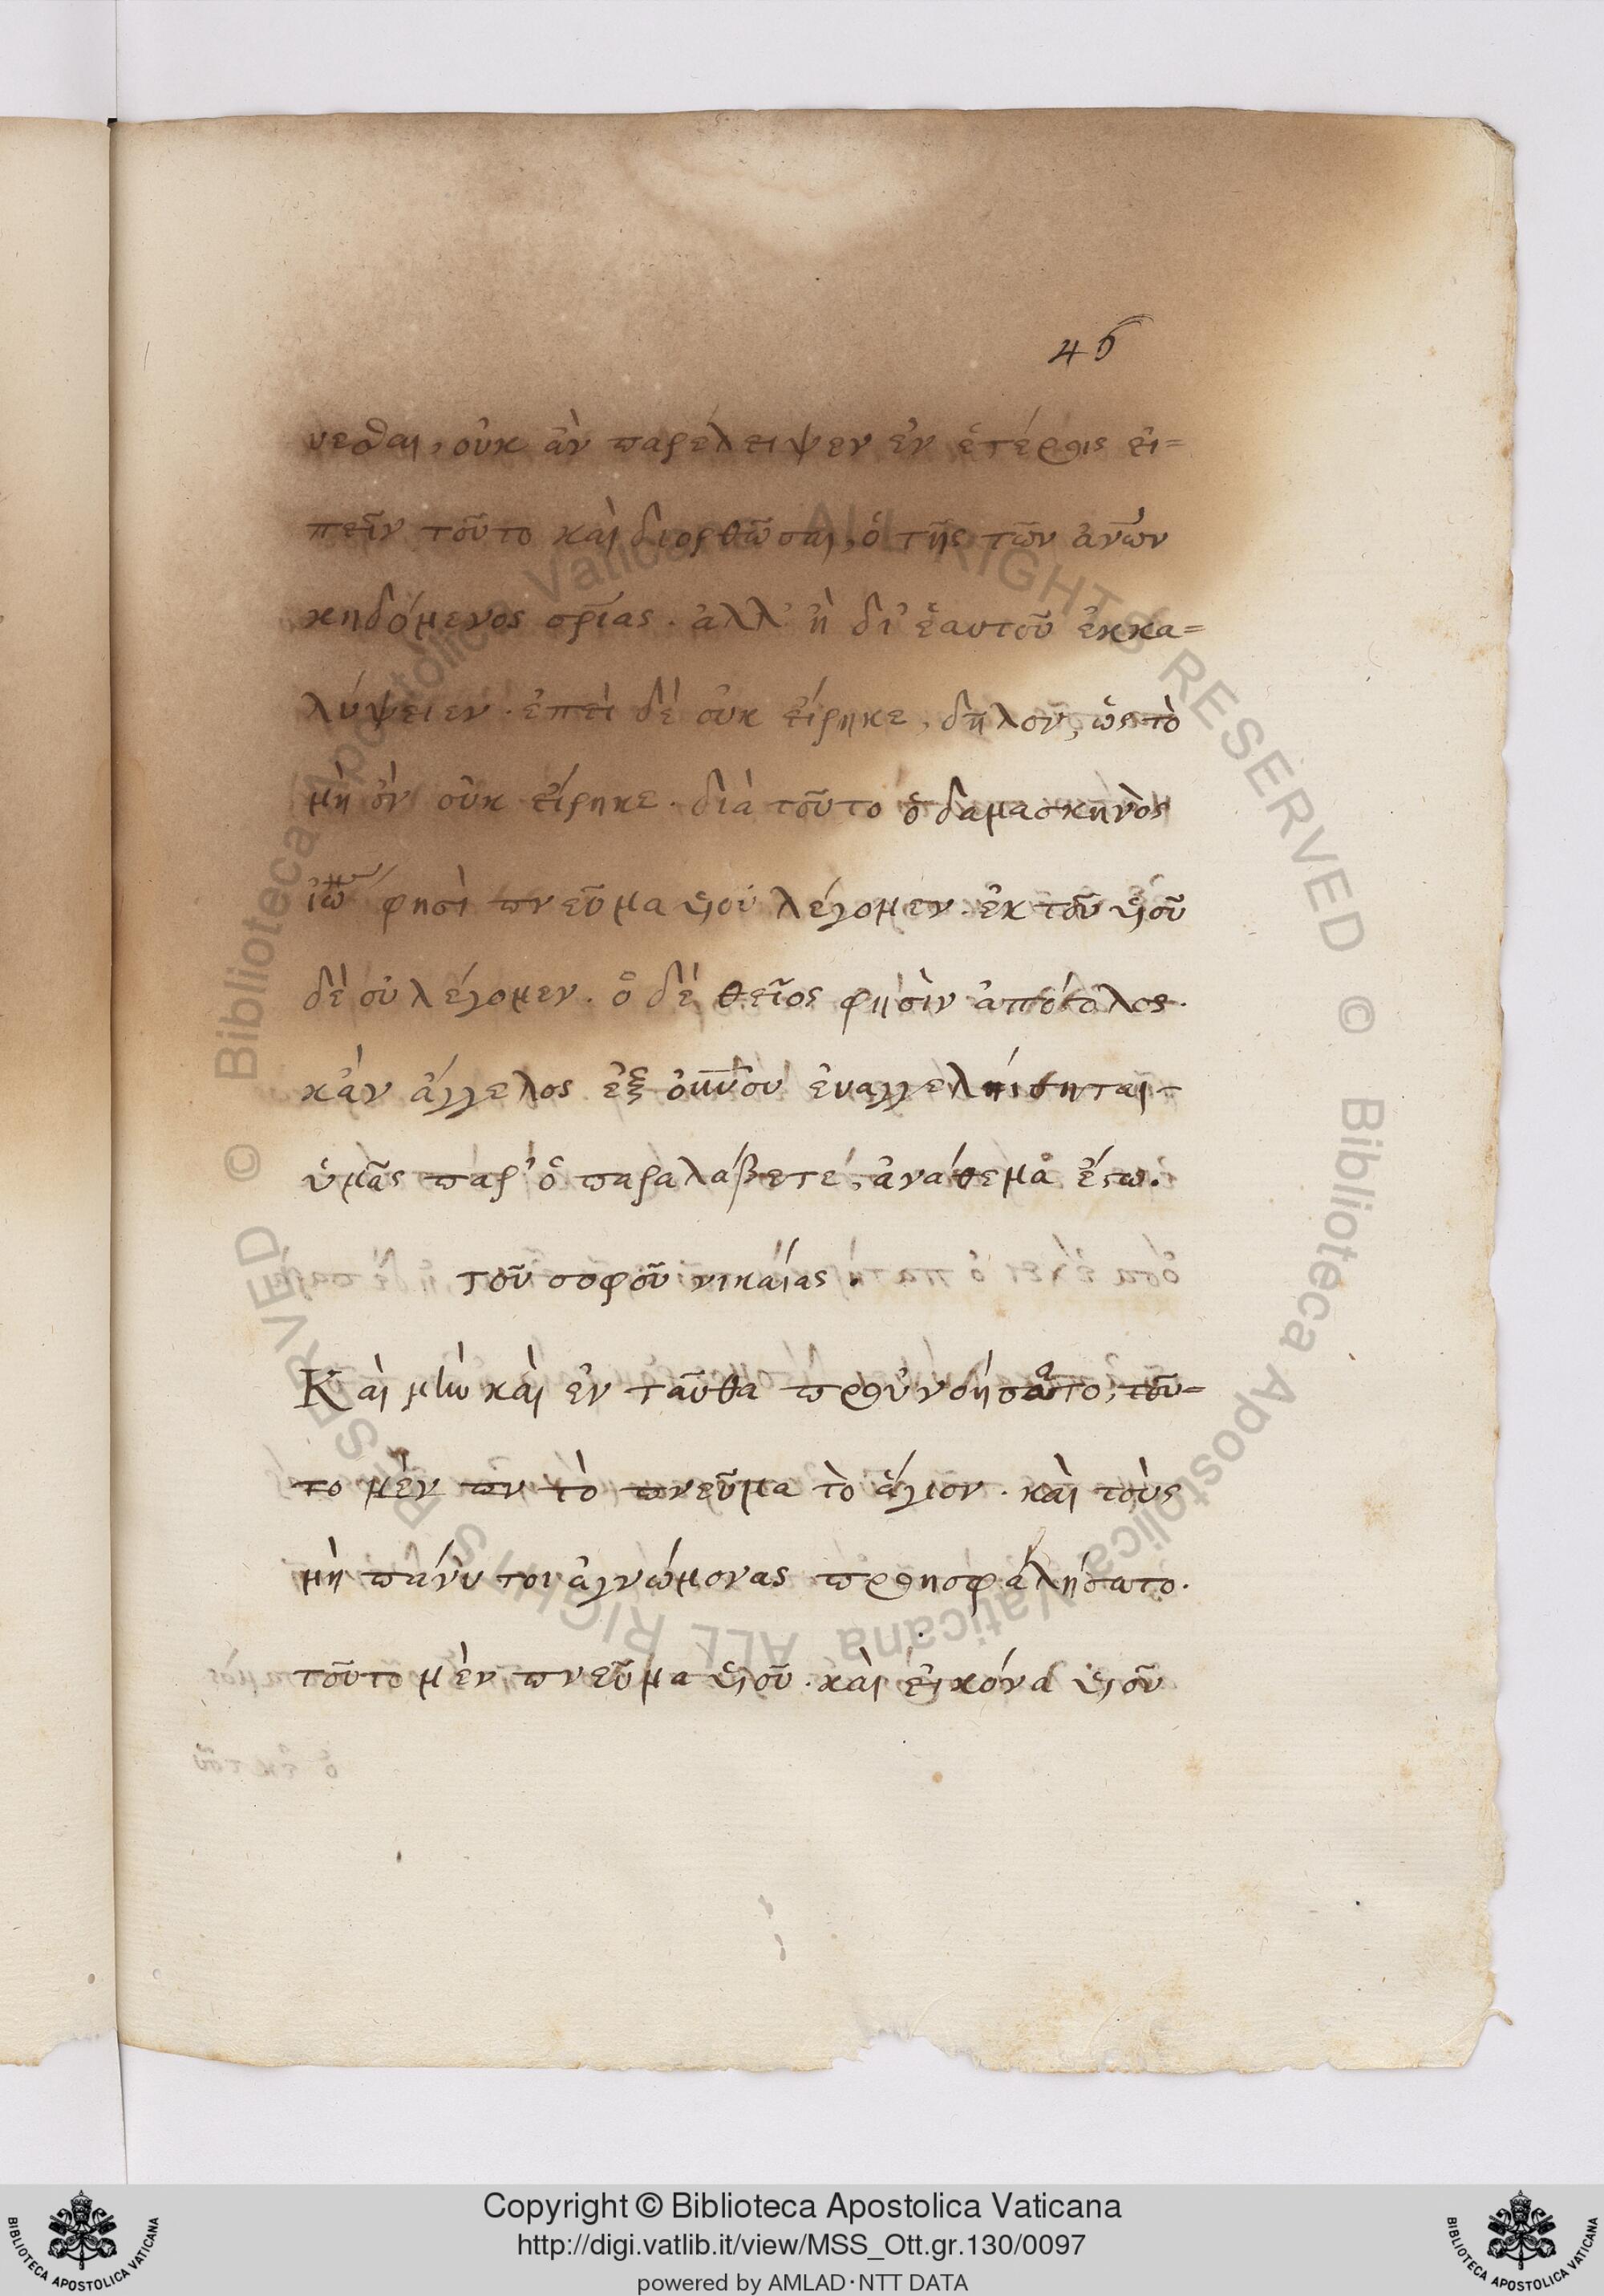 46
νεσθαι, οὐκ ἂν παρέλειψεν ἐν ἑτέροις εἰ=
πεῖν τοῦτο καὶ διορθῶσαι, ὁ τῆς τῶν ἀνῶν
κηδόμενος σρίας. ἀλλ' ἢ δι' ἑαυτοῦ ἐκκα=
λύψειεν. ἐπεὶ δὲ οὐκ εἴρηκε, δῆλον, ὡς τὸ
μὴ ὂν οὐκ εἴρηκε. διὰ τοῦτο ὁ δαμασκηνὸς
ἰω φησὶ πνεῦμα υἱοῦ λέγομεν. ἐκ τοῦ υἱοῦ
δὲ οὐ λέγομεν. ὁ δὲ θεῖος φησὶν ἀπόστολος.
κἂν ἄγγελος ἐξ οὐνοῦ εὐαγγεληίσηται
ὑμᾶς παρ' ὃ παραλάβετε, ἀνάθεμα ἔστω.
τοῦ σοφοῦ νικαίας.
Καὶ μὴν καὶ ἐν ταῦθα προὐνοήσατο, τοῦ=
το μὲν πν τὸ πνεῦμα τὸ ἅγιον. καὶ τοὺς
μὴ πάνυ τοι ἀγνώμονας προησφαλήσατο.
τοῦτο μὲν πνεῦμα υἱοῦ. καὶ εἰκόνα υἱοῦ
Copyright © Biblioteca Apostolica Vaticana
http://digi.vatlib.it/view/MSS_Ott.gr.130/0097
powered by AMLAD·NTT DATA
BIBLIOTECA APOSTOLICA VATICANA
BIBLIOTECA APOSTOLICA VATICANA
© Biblioteca Apostolica Vaticana ALL RIGHTS RESERVED © Biblioteca Apostolica Vaticana ALL RIGHTS RESERVED